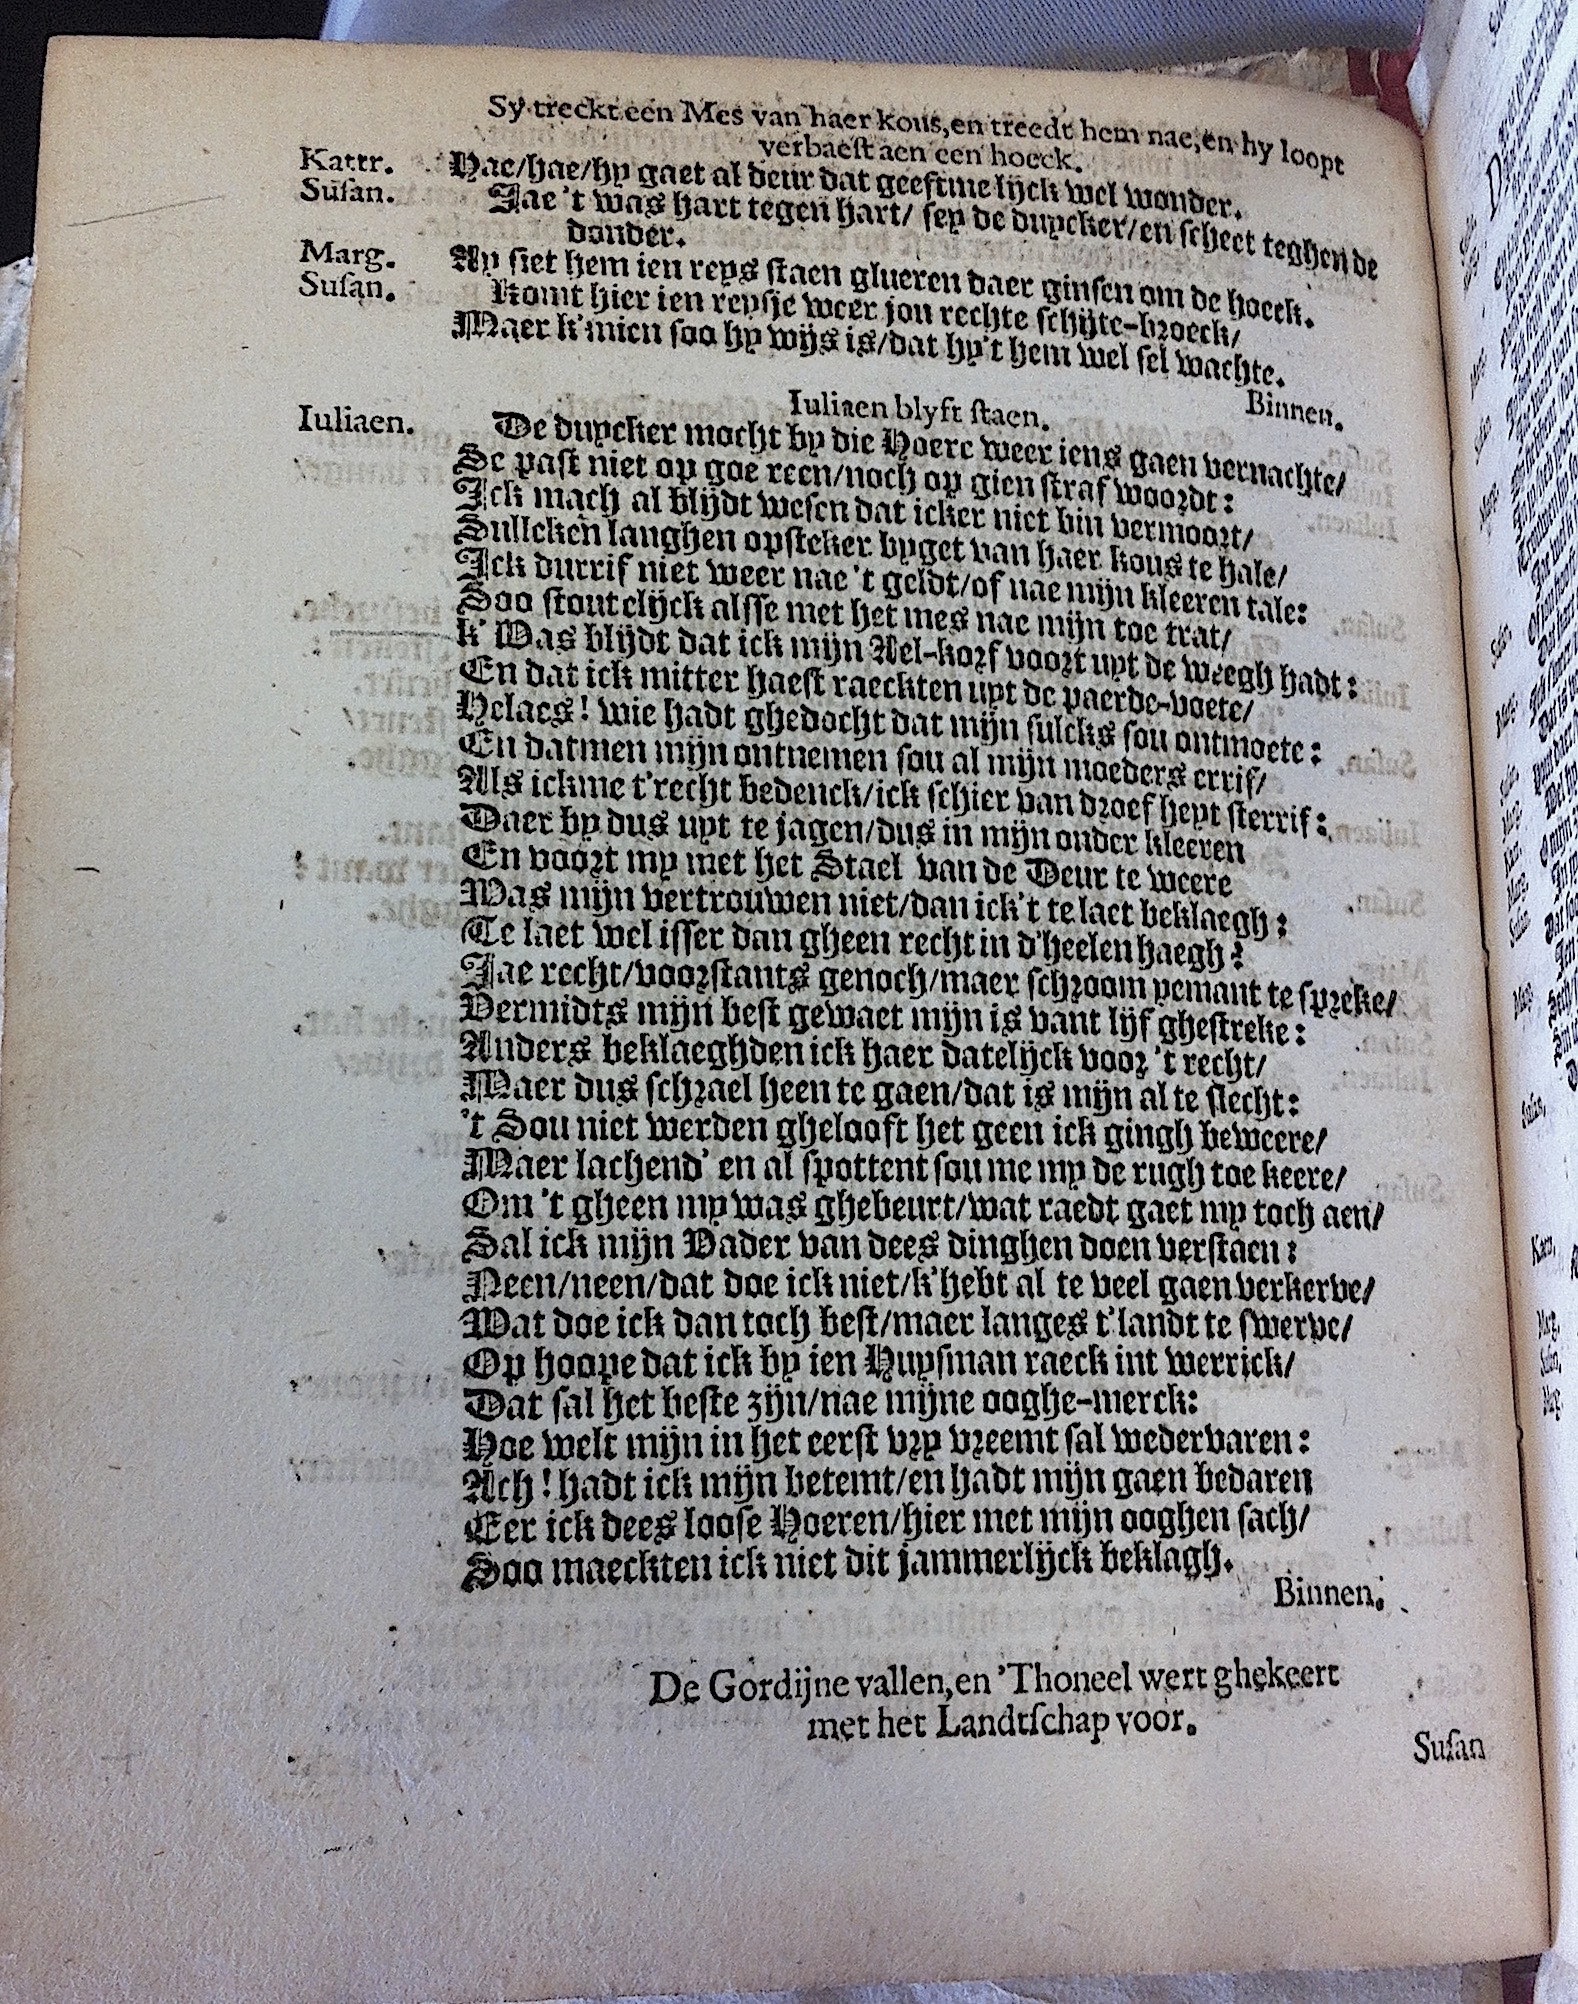 Sy treckt een Mes van haer kous, en treedt hem nae, en hy loopt
verbaest aen een hoeck.
Kattr. Hae/hae/hy gaet al deur dat geeftme lijck wel wonder.
Susan. Jae 't was hart tegen hart/ sey de duycker/en scheet teghen de
donder.
Marg. Ay siet hem ien reys staen glueren daer ginsen om de hoeck.
Susan. Komt hier ien reysje weer jou rechte schijte-broeck/
Maer k'mien soo hy wijs is/dat hy't hem wel sel wachte.
Binnen.
Iuliaen blyft staen.
Iuliaen. De duycker mocht by die Hoere weer iens gaen vernachte/
Se past niet op goe reen/noch op gien straf woordt:
Ick mach al blijdt wesen dat icker niet bin vermoort/
Sullcken langhen opsteker byget van haer kous te hale/
Ick durrif niet weer nae 't geldt/of nae mijn kleeren tale:
Soo stoutelijck alsse met het mes nae mijn toe trat/
k' Was blijdt dat ick mijn Ael-korf voort uyt de weegh hadt:
En dat ick mitter haest raeckten uyt de paerde-voete/
Helaes! wie hadt ghedocht dat mijn sulcks sou ontmoete:
En datmen mijn ontnemen sou al mijn moeders errif/
Als ickme t'recht bedenck/ick schier van droefheyt sterrif:
Daer by dus uyt te jagen/dus in mijn onder kleeren
En voort my met het Stael van de Deur te weere
Was mijn vertrouwen niet/dan ick't te laet beklaegh:
Te laet wel isser dan gheen recht in d'heelen haegh?
Jae recht/voorstants genoch/maer schroom yemant te spreke/
Vermidts mijn best gewaet mijn is vant lijf ghestreke:
Anders beklaeghden ick haer datelijck voor 't recht/
Maer dus schrael heen te gaen/dat is mijn al te slecht:
't Sou niet werden ghelooft het geen ick gingh beweere/
Maer lachend' en al spottent sou me my de rugh toe keere/
Om 't gheen my was ghebeurt/wat raedt gaet my toch aen/
Sal ick mijn Vader van dees dinghen doen verstaen:
Neen/neen/dat doe ick niet/k'hebt al te veel gaen verkerve/
Wat doe ick dan toch best/maer langes t'landt te swerve/
Op hoope dat ick by ien Huysman raeck int werrick/
Dat sal het beste zijn/nae mijne ooghe-merck:
Hoe welt mijn in het eerst vry vreemt sal wedervaren:
Ach! hadt ick mijn betemt/en hadt mijn gaen bedaren
Eer ick dees loose Hoeren/hier met mijn ooghen sach/
Soo maeckten ick niet dit jammerlijck beklagh.
Binnen.
De Gordijne vallen, en 'Thoneel wert ghekeert
met het Landtschap voor.
Susan